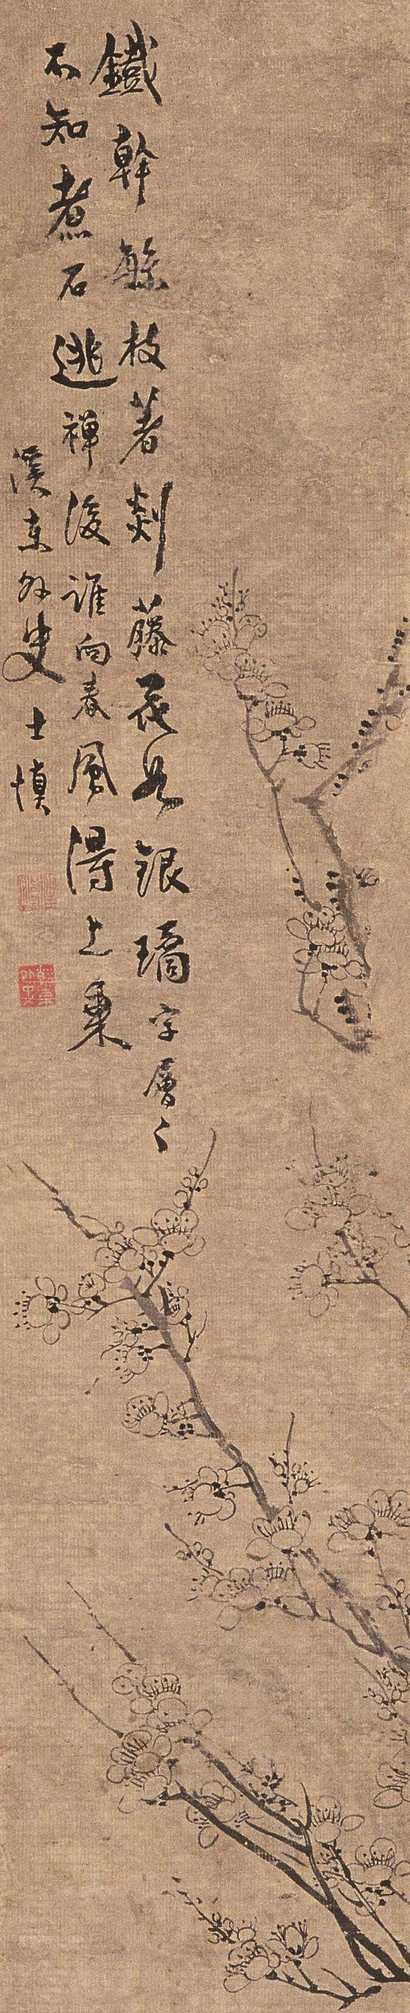 鐵幹繁枝著剡藤花如銀璚字層〻
不知煮石逃禪後誰向春風得上乘
溪東外史士慎